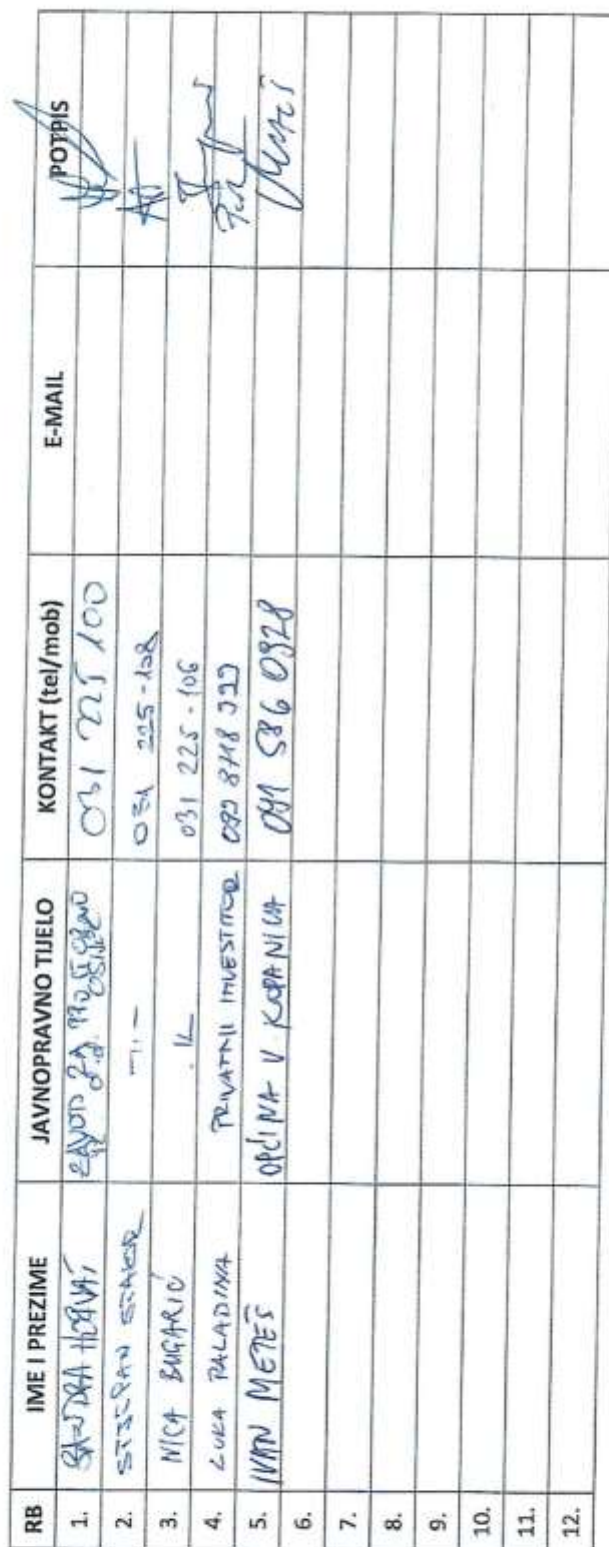 RB IME I PREZIME JAVNOPRAVNO TIJELO KONTAKT (tel/mob) E-MAIL POTPIS
1. SANDRA HORVAT ZAVOD ZA 031 225 100
2. STJEPAN 031 225-108
3. NICA BUGARIĆ 031 225-106
4. LUKA PALADINA PRIVATNI INVESTITOR
5. IVAN METEŠ OPĆINA V. KOPANICA 091 586 0928
6.
7.
8.
9.
10.
11.
12.